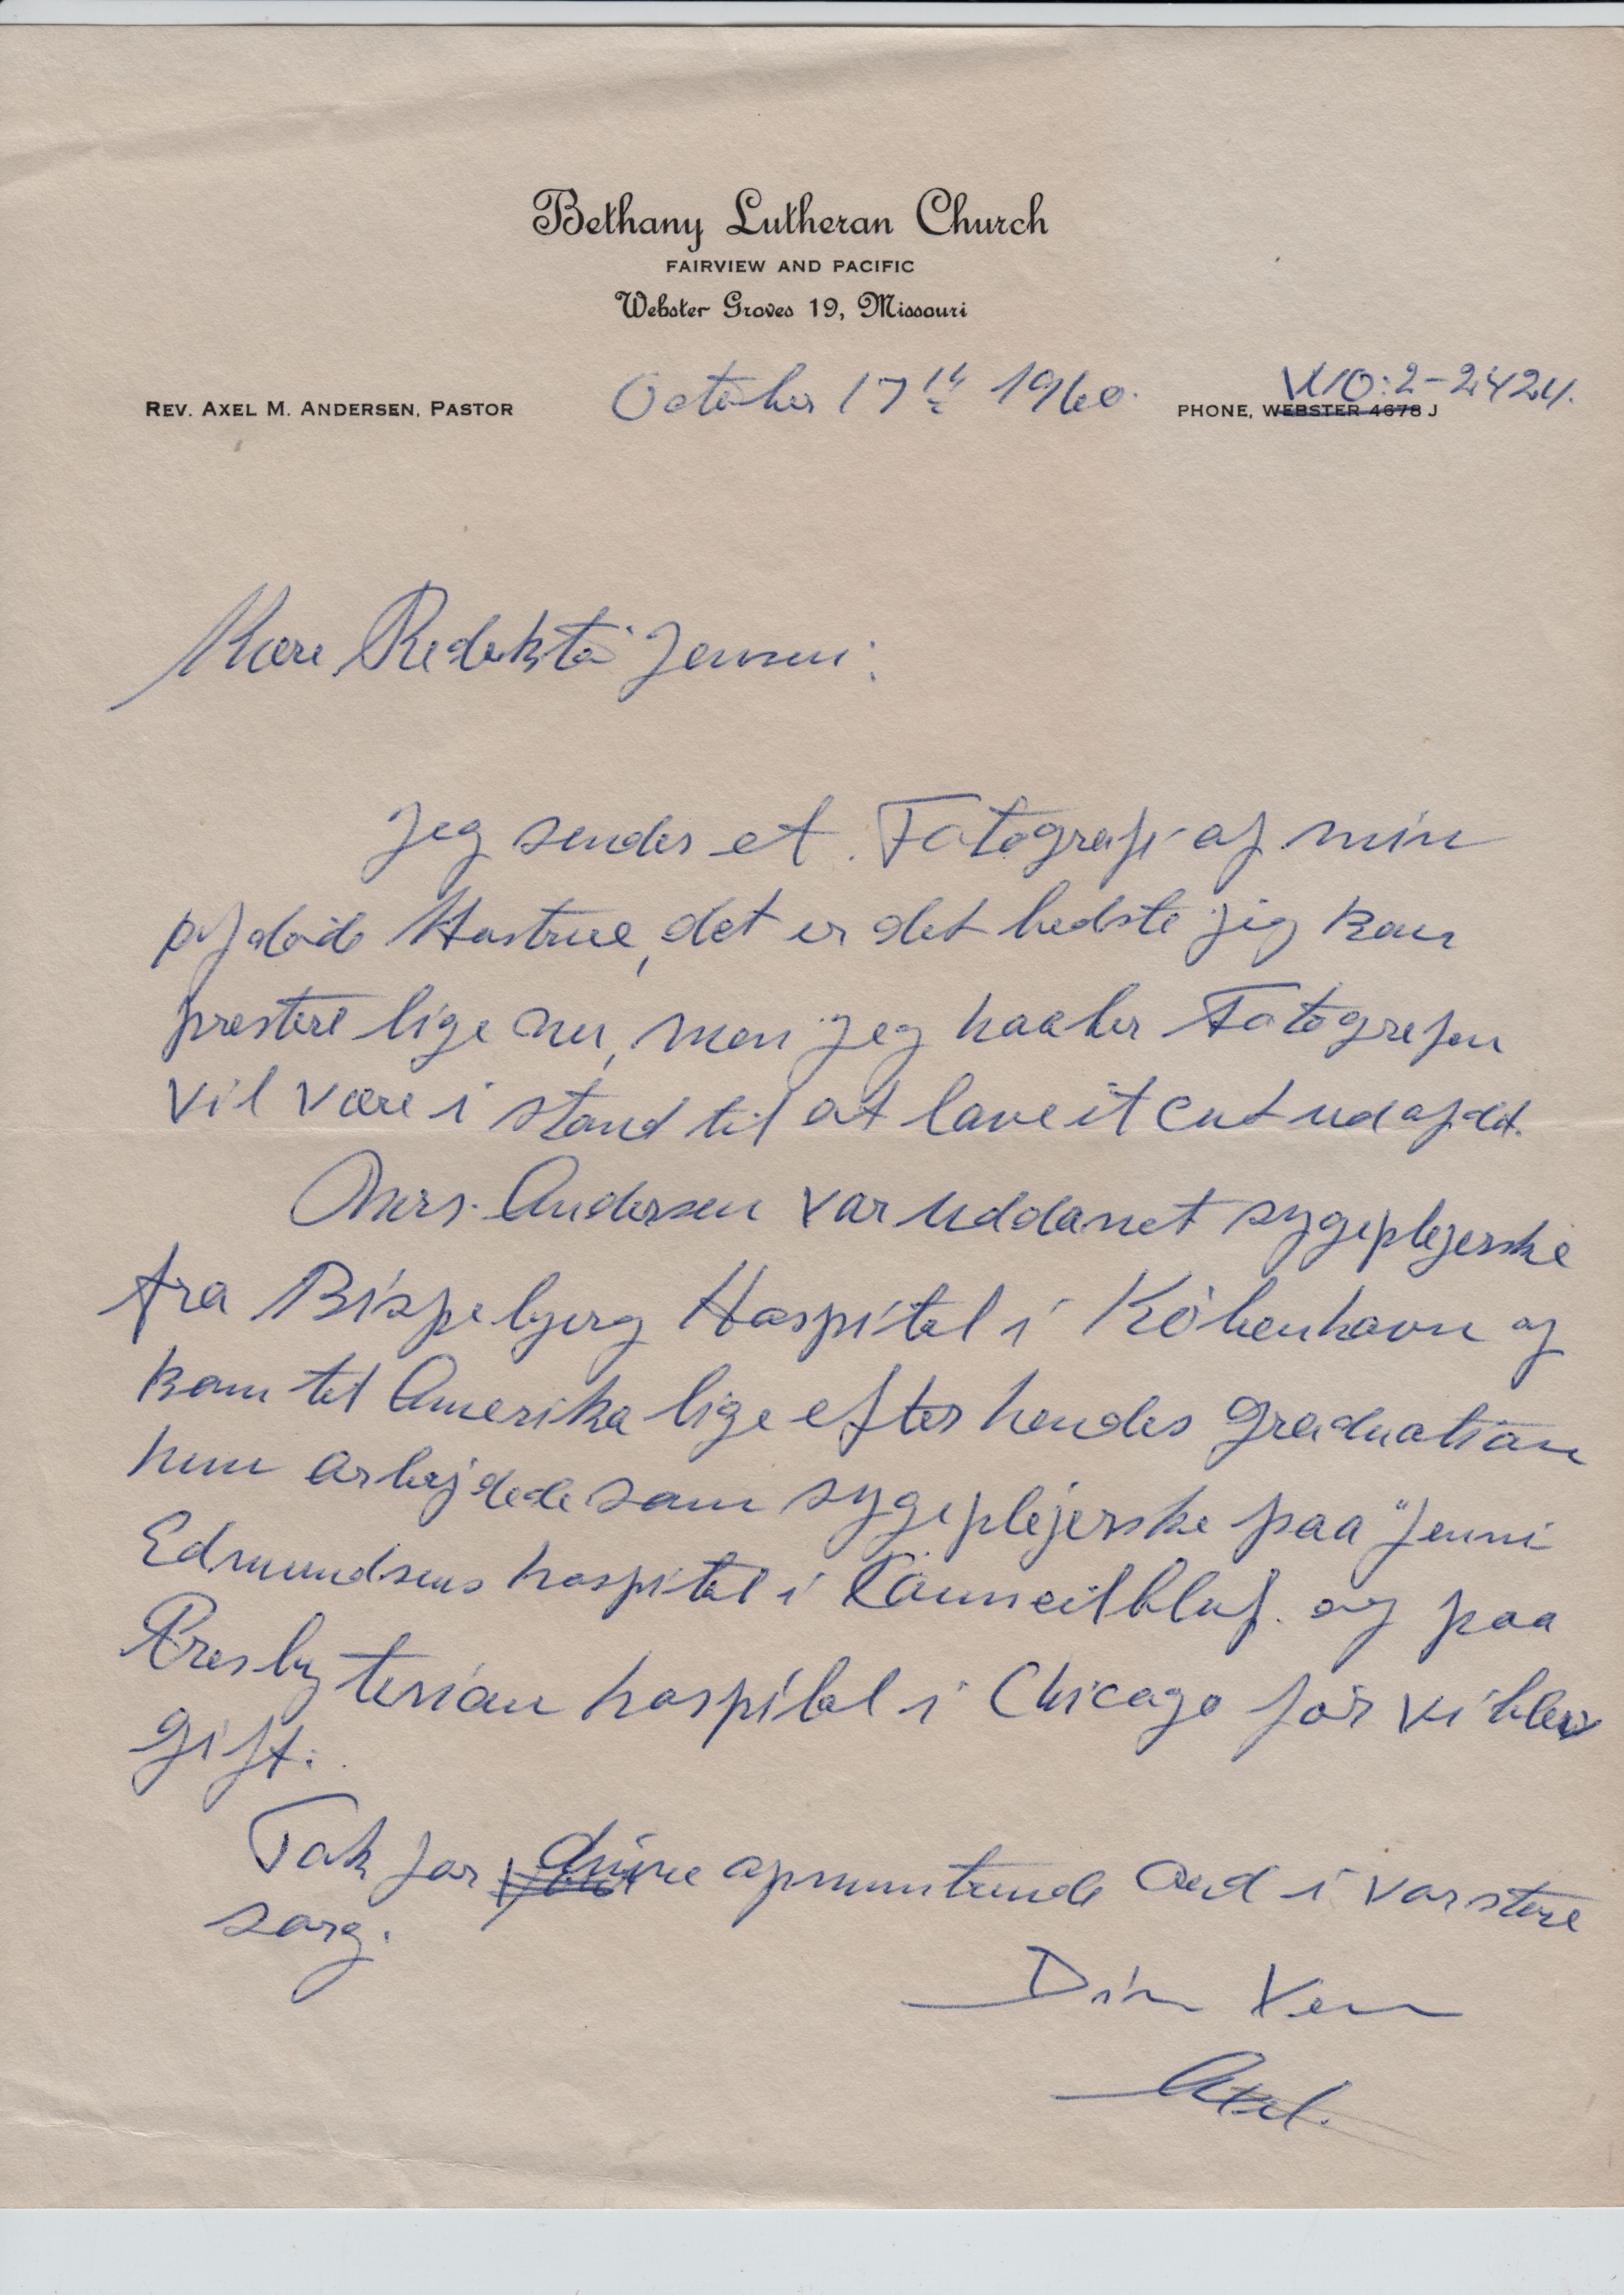 Bethany Lutheran Church
FAIRVIEW AND PACIFIC
Webster Groves 19, Missouri
REV. AXEL M. ANDERSEN, PASTOR
October 17th 1960.
WO:2-2424.
PHONE, WEBSTER 4678 J
Kære Redaktör Jensen:
Jeg sender et Fotografi af min
afdöde Hustrue, det er det bedste jeg kan
prestere lige nu, men jeg haaber Fotografen
vil være i stand til at lave et cut ud af det.
Mrs. Andersen var uddannet sygeplejerske
fra Bispebjerg Hospital i Köbenhavn og
kom til Amerika lige efter hendes graduation
hun arbejdede som sygeplejerske paa "Jenni
Edmundsens hospital i Counceilbluf. og paa
Presbyterian hospital i Chicago för vi blev
gift.
Tak for dine opmuntrende ord i vor store
sorg.
Din Ven
Axel.